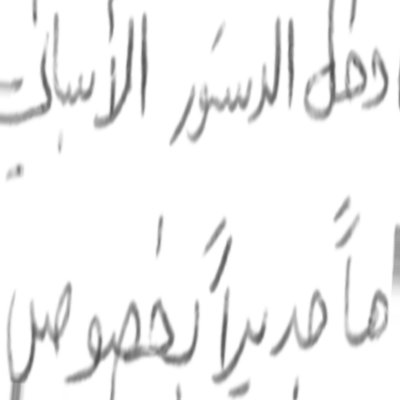 دخل الدستور الأسباني
هاً جديداً بخصوص